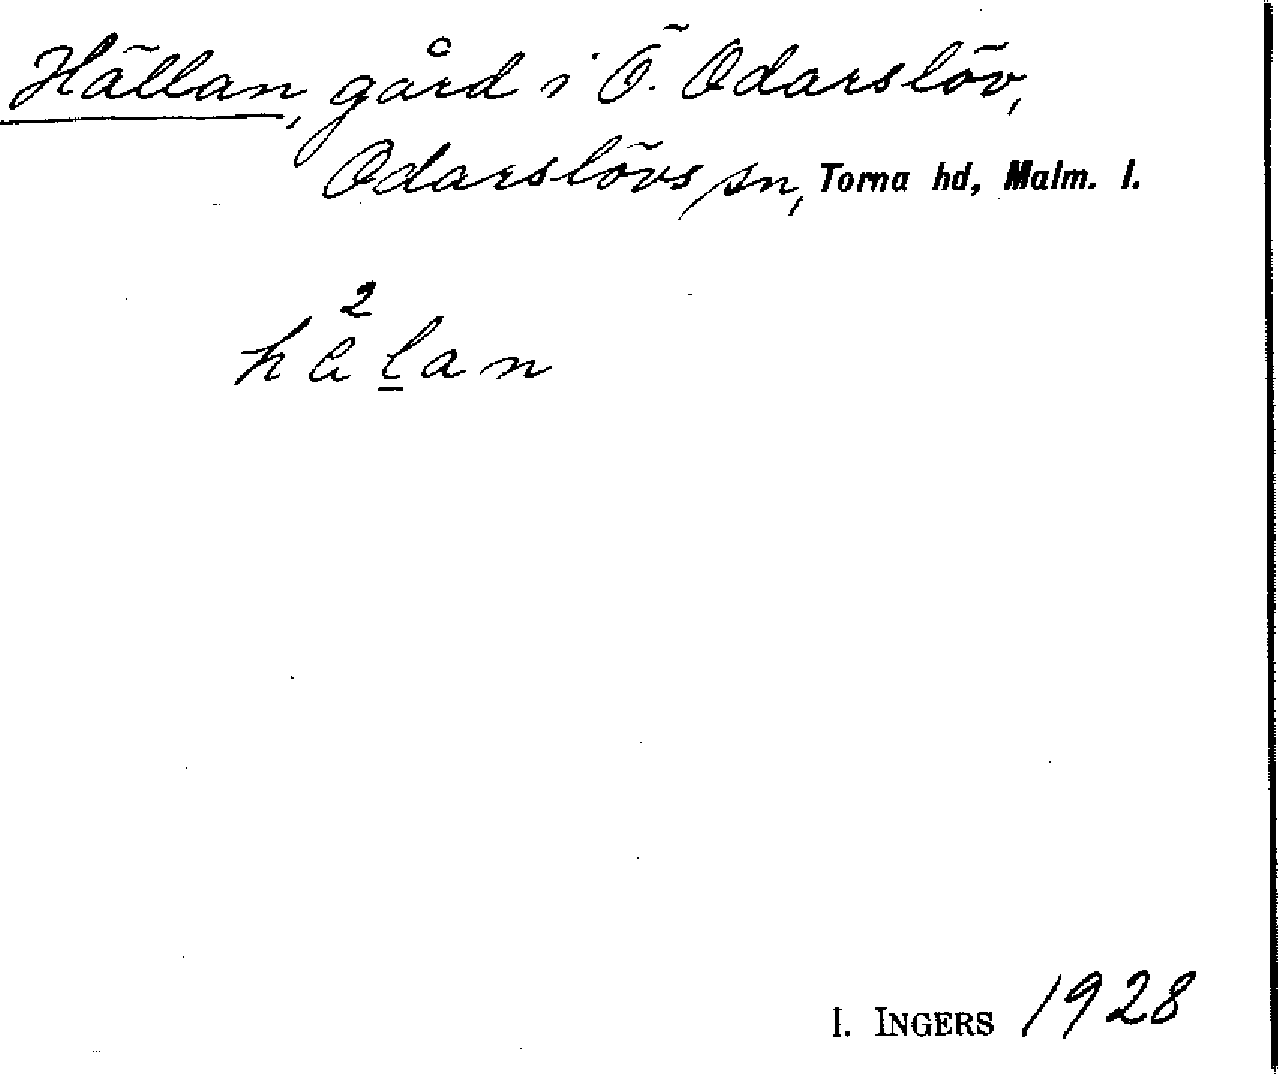 Hällan, gård i Ö. Odarslöv,
Odarslövs sn, Torna hd, Malm. l.
I. INGERS 1928